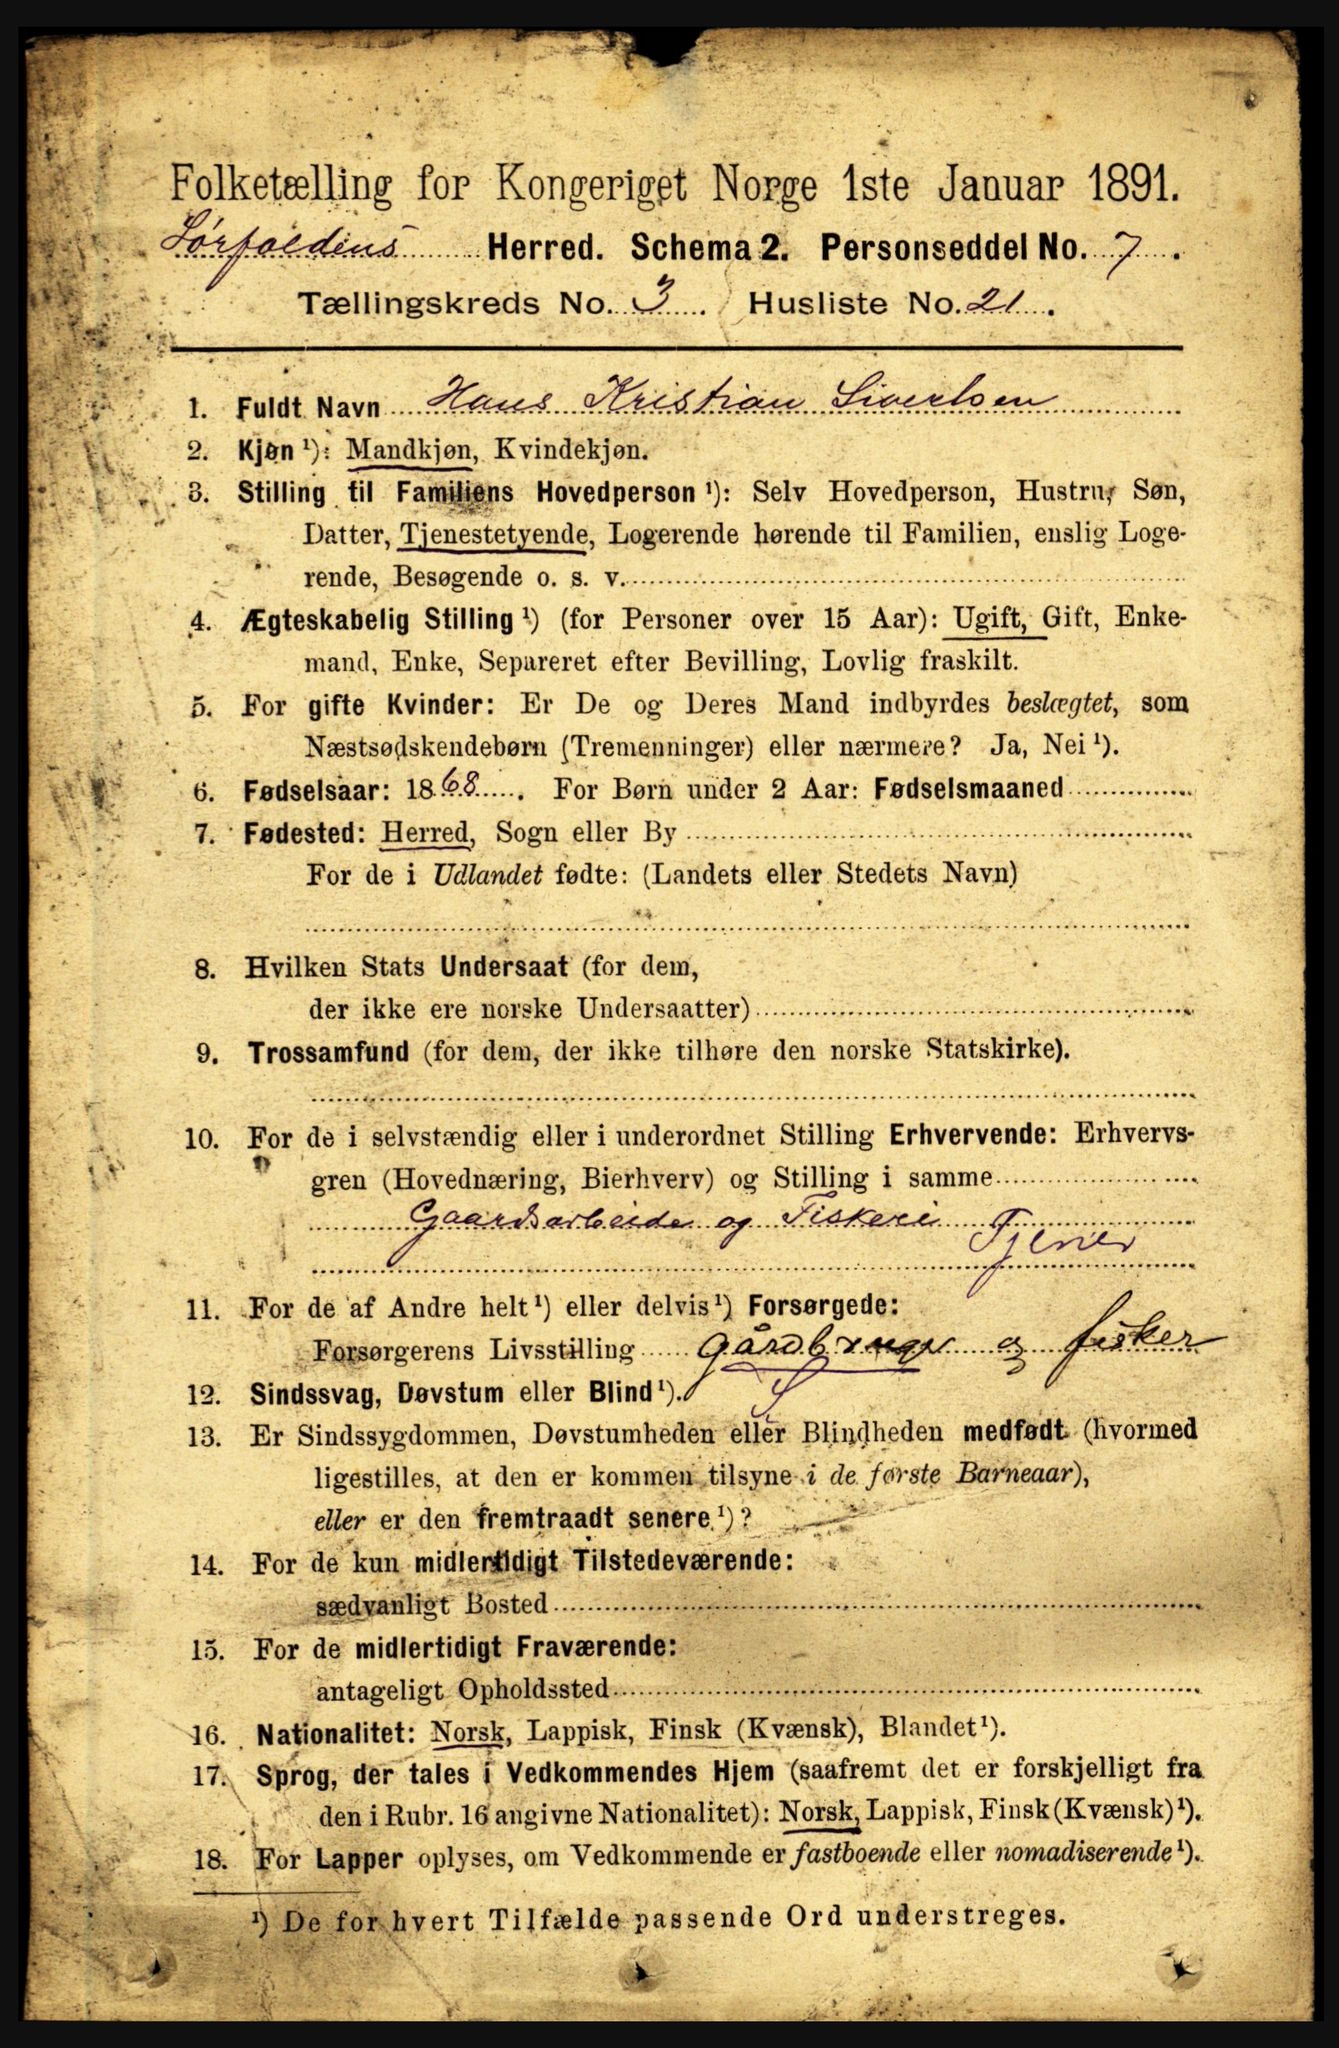 Folketælling for Kongeriget Norge 1ste Januar 1891.
Sørfoldens Herred. Schema 2. Personseddel No. 7.
Tællingskreds No. 3. Husliste No. 21.
1. Fuldt Navn Hans Kristian Sivertsen
2. Kjøn ¹): Mandkjøn, Kvindekjøn.
3. Stilling til Familiens Hovedperson ¹): Selv Hovedperson, Hustru, Søn,
Datter, Tjenestetyende, Logerende hørende til Familien, enslig Loge-
rende, Besøgende o. s. v.
4. Ægteskabelig Stilling ¹) (for Personer over 15 Aar): Ugift, Gift, Enke-
mand, Enke, Separeret efter Bevilling, Lovlig fraskilt.
5. For gifte Kvinder: Er De og Deres Mand indbyrdes beslægtet, som
Næstsødskendebørn (Tremenninger) eller nærmere? Ja, Nei ¹).
6. Fødselsaar: 1868. For Børn under 2 Aar: Fødselsmaaned
7. Fødested: Herred, Sogn eller By
For de i Udlandet fødte: (Landets eller Stedets Navn)
8. Hvilken Stats Undersaat (for dem,
der ikke ere norske Undersaatter)
9. Trossamfund (for dem, der ikke tilhøre den norske Statskirke).
10. For de i selvstændig eller i underordnet Stilling Erhvervende: Erhvervs-
gren (Hovednæring, Bierhverv) og Stilling i samme
Gaardsarbeide og Fiskeri
Tjener
11. For de af Andre helt ¹) eller delvis ¹) Forsørgede:
Forsørgerens Livsstilling Gårdbruger og fisker
12. Sindssvag, Døvstum eller Blind ¹).
13. Er Sindssygdommen, Døvstumheden eller Blindheden medfødt (hvormed
ligestilles, at den er kommen tilsyne i de første Barneaar),
eller er den fremtraadt senere ¹)?
14. For de kun midlertidigt Tilstedeværende:
sædvanligt Bosted
15. For de midlertidigt Fraværende:
antageligt Opholdssted
16. Nationalitet: Norsk, Lappisk, Finsk (Kvænsk), Blandet ¹).
17. Sprog, der tales i Vedkommendes Hjem (saafremt det er forskjelligt fra
den i Rubr. 16 angivne Nationalitet): Norsk, Lappisk, Finsk (Kvænsk) ¹).
18. For Lapper oplyses, om Vedkommende er fastboende eller nomadiserende ¹).
¹) De for hvert Tilfælde passende Ord understreges.